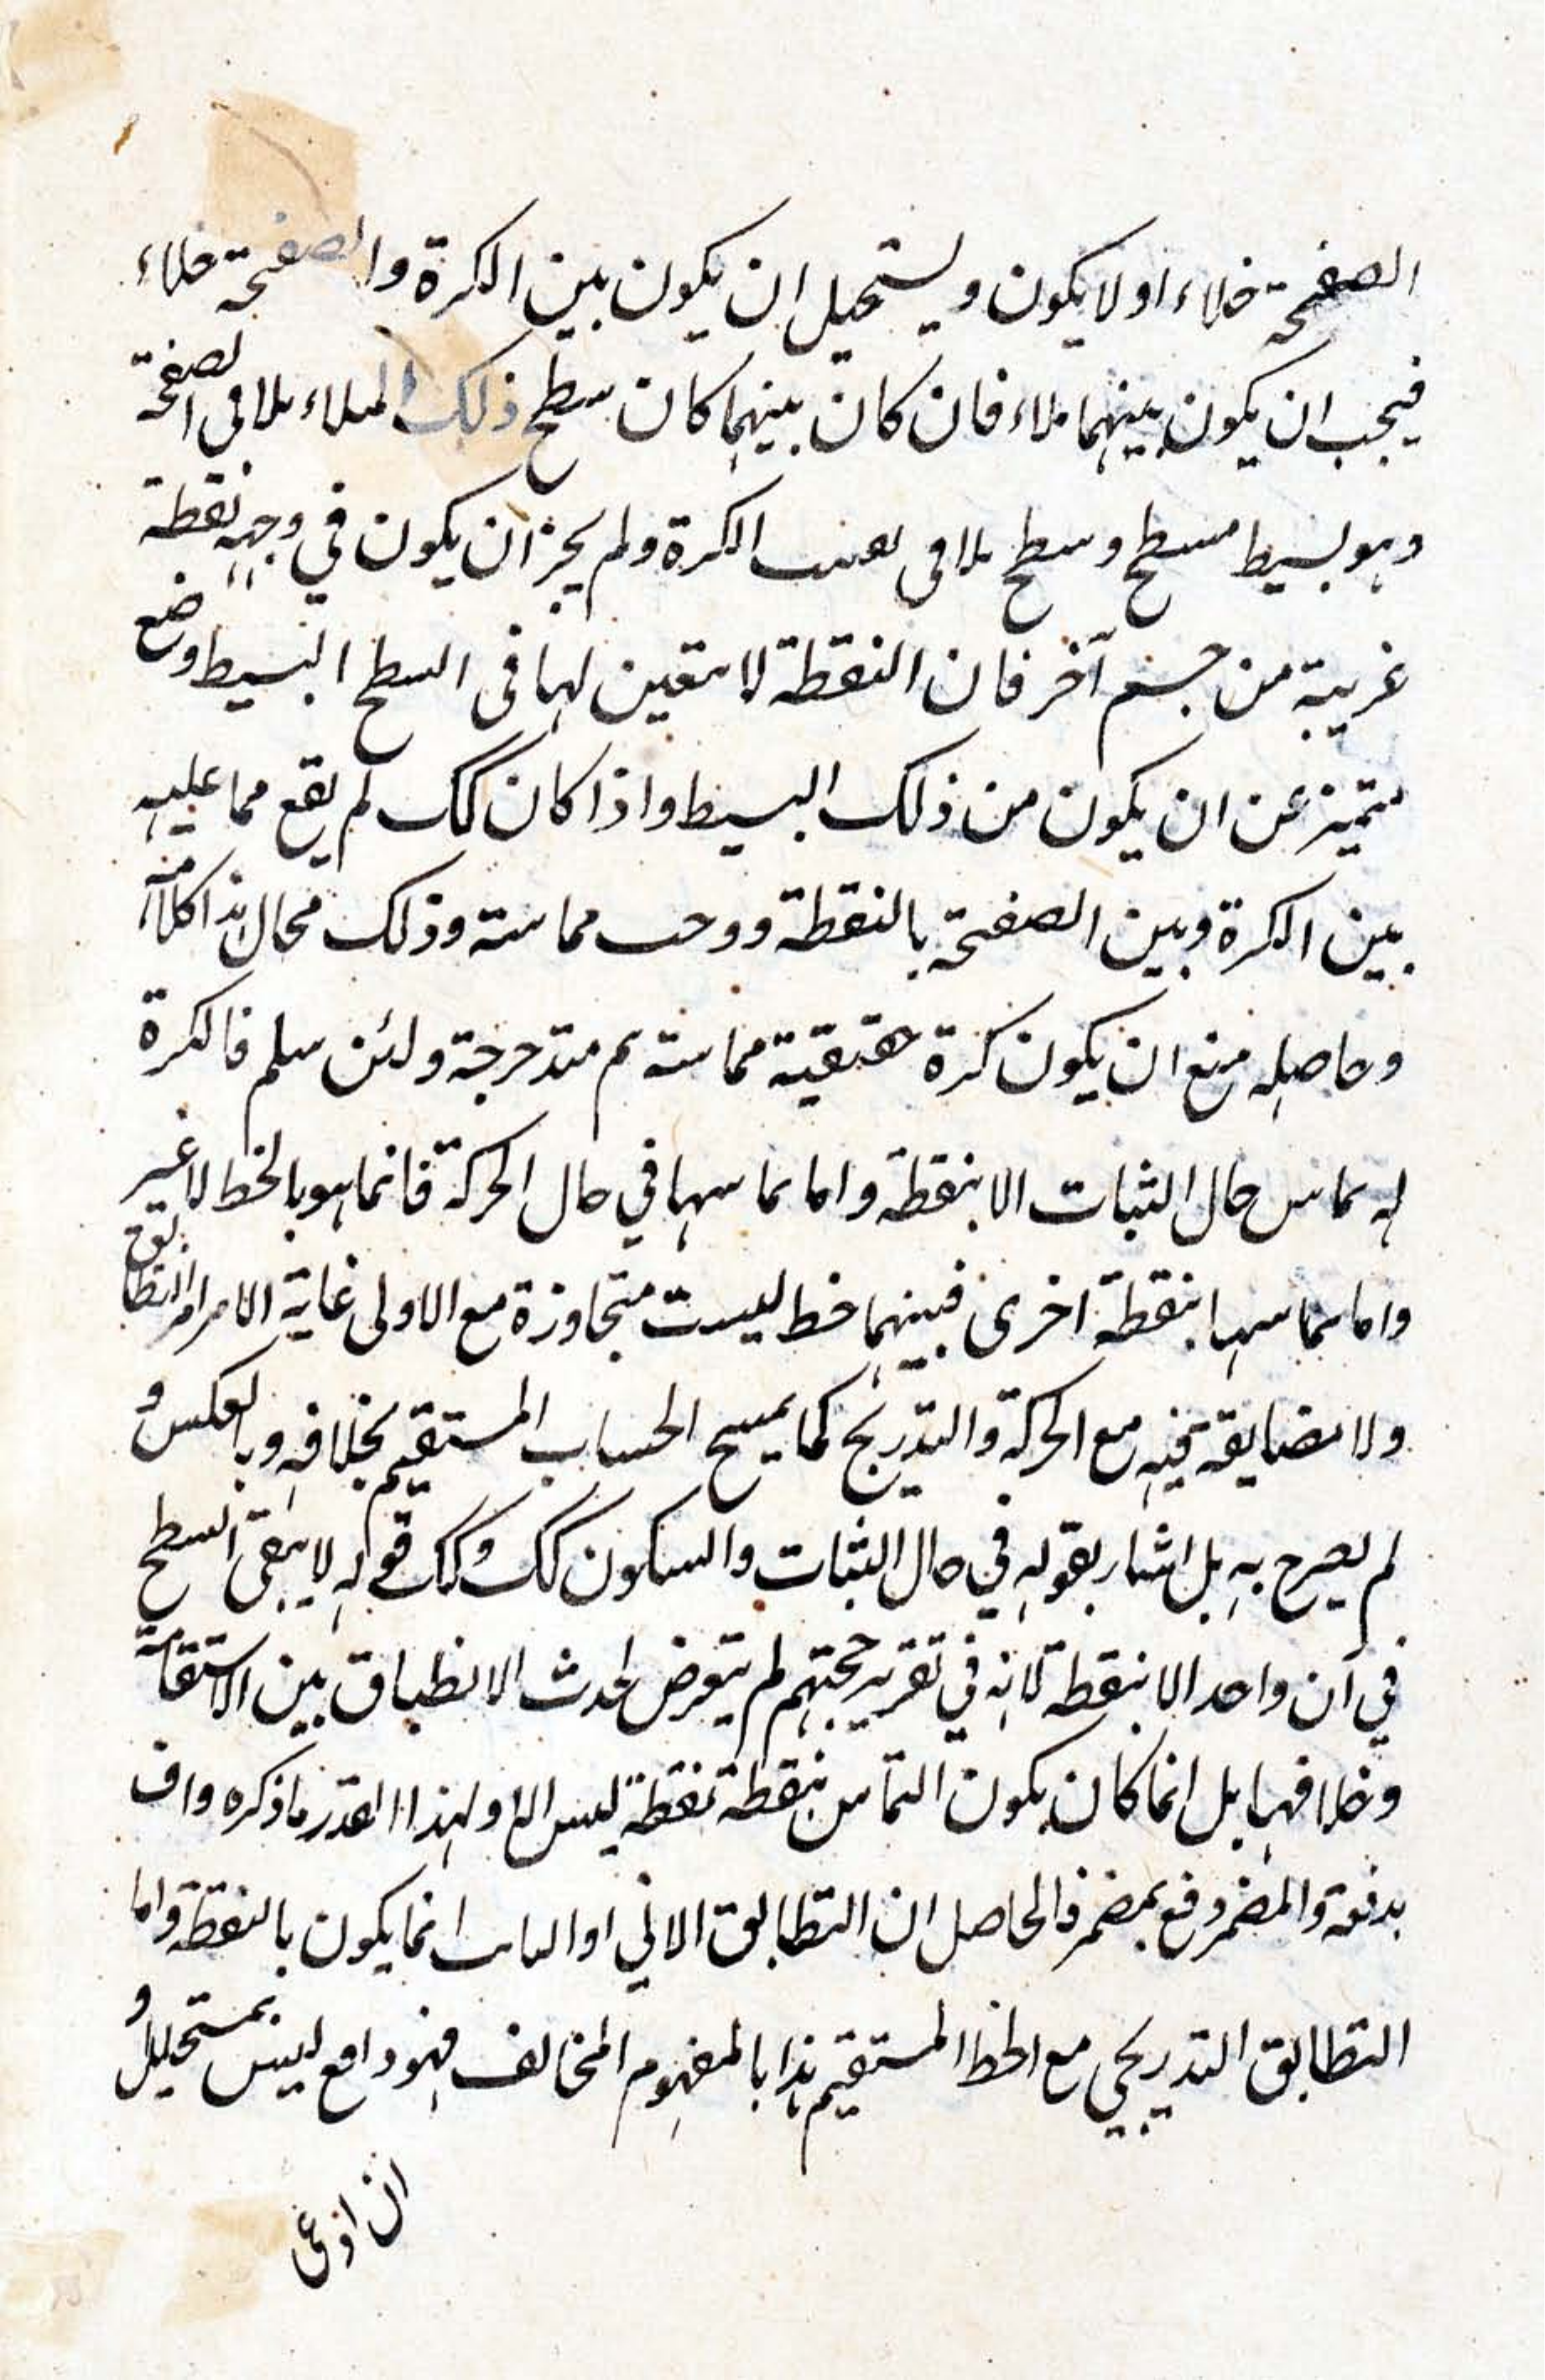 الصفحة خلاء او لا يكون ويستحيل ان يكون بين الكرة والصفحة خلاء
فيجب ان يكون بينهما ملاء فان كان بينهما كان سطح ذلك الملاء يلاقى الصفحة
وهو بسيط مسطح وسطح يلاقى الكرة ولم يجز ان يكون في وجهه نقطة
غريبة من جسم آخر فان النقطة لا يتعين لها فى السطح البسيط وضع
يتميز عن ان يكون من ذلك البسيط واذا كان كك لم يقع مما عليه
بين الكرة وبين الصفحة بالنقطة ووجب مماسته وذلك محال هذا كلامه
وحاصله منع ان يكون كرة حقيقية مماسته ثم متدحرجة ولئن سلم فالكرة
له يماس حال الثبات الا بنقطة واما تماسها في حال الحركة فانما هو بالخط لا غير
واما تماسها بنقطة اخرى فبينهما خط ليست متجاوزة مع الاولى غاية الامر امر التطابق
ولا مضايقة فيه مع الحركة والتدريج كما يمسح الحساب المستقيم بخلافه وبالعكس و
لم يصرح به بل اشار بقوله في حال الثبات والسكون كك وكك قوله لا يبقى السطح
في آن واحد الا بنقطة لانه في تقرير حجتهم لم يتعرض لحدث الانطباق بين الاستقامة
وخلافها بل انما كان يكون التماس بنقطة نقطة ليس الا ولهذا القدر ما ذكره واف
بدفعة والمضمر رفع بمضمر فالحاصل ان التطابق الاني او الثابت انما يكون بالنقطة واما
التطابق التدريجي مع الخط المستقيم هذا بالمفهوم المخالف فهو دافع ليس بمستحيل و
ان ادعى